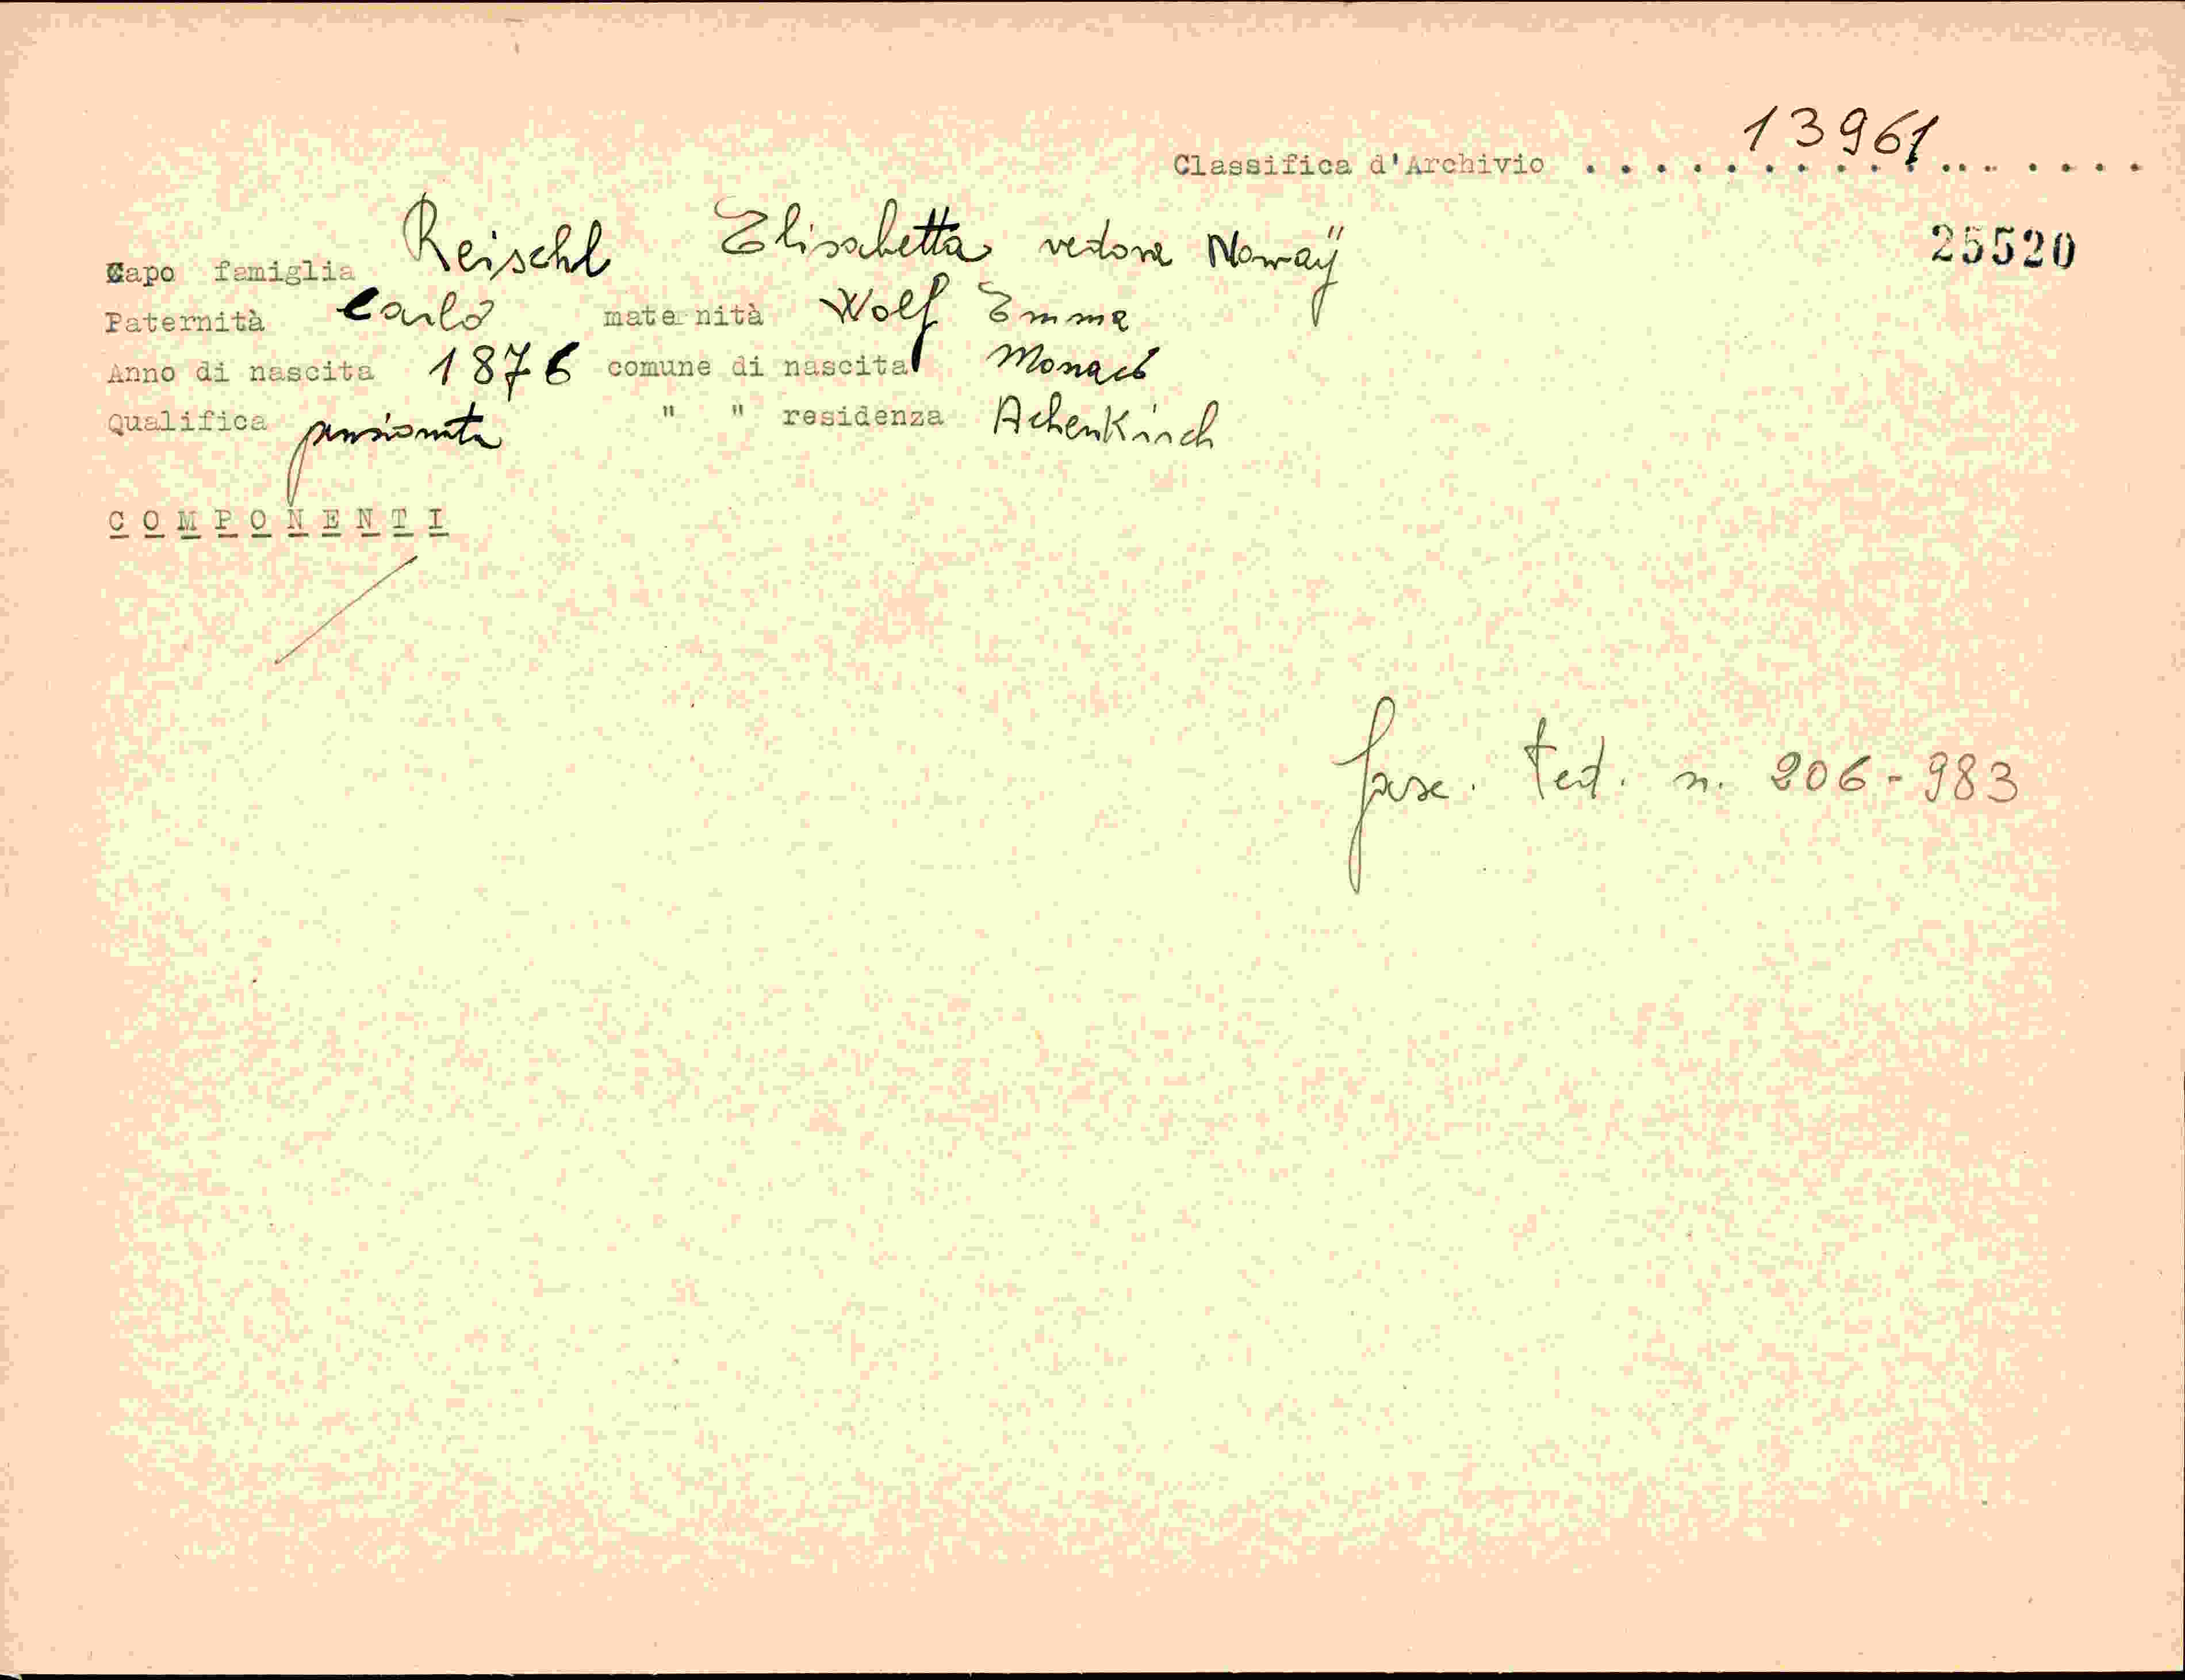 Classifica d'Archivio . . . . . 13961 . . . . .
25520
Capo famiglia Reischl Elisabetta vedova Noway̎
Paternità Carlo maternità Wolf Emma
Anno di nascita 1876 comune di nascita Monaco
Qualifica pensionata " " residenza Achenkirch
COMPONENTI
fasc. ted. n. 206-983